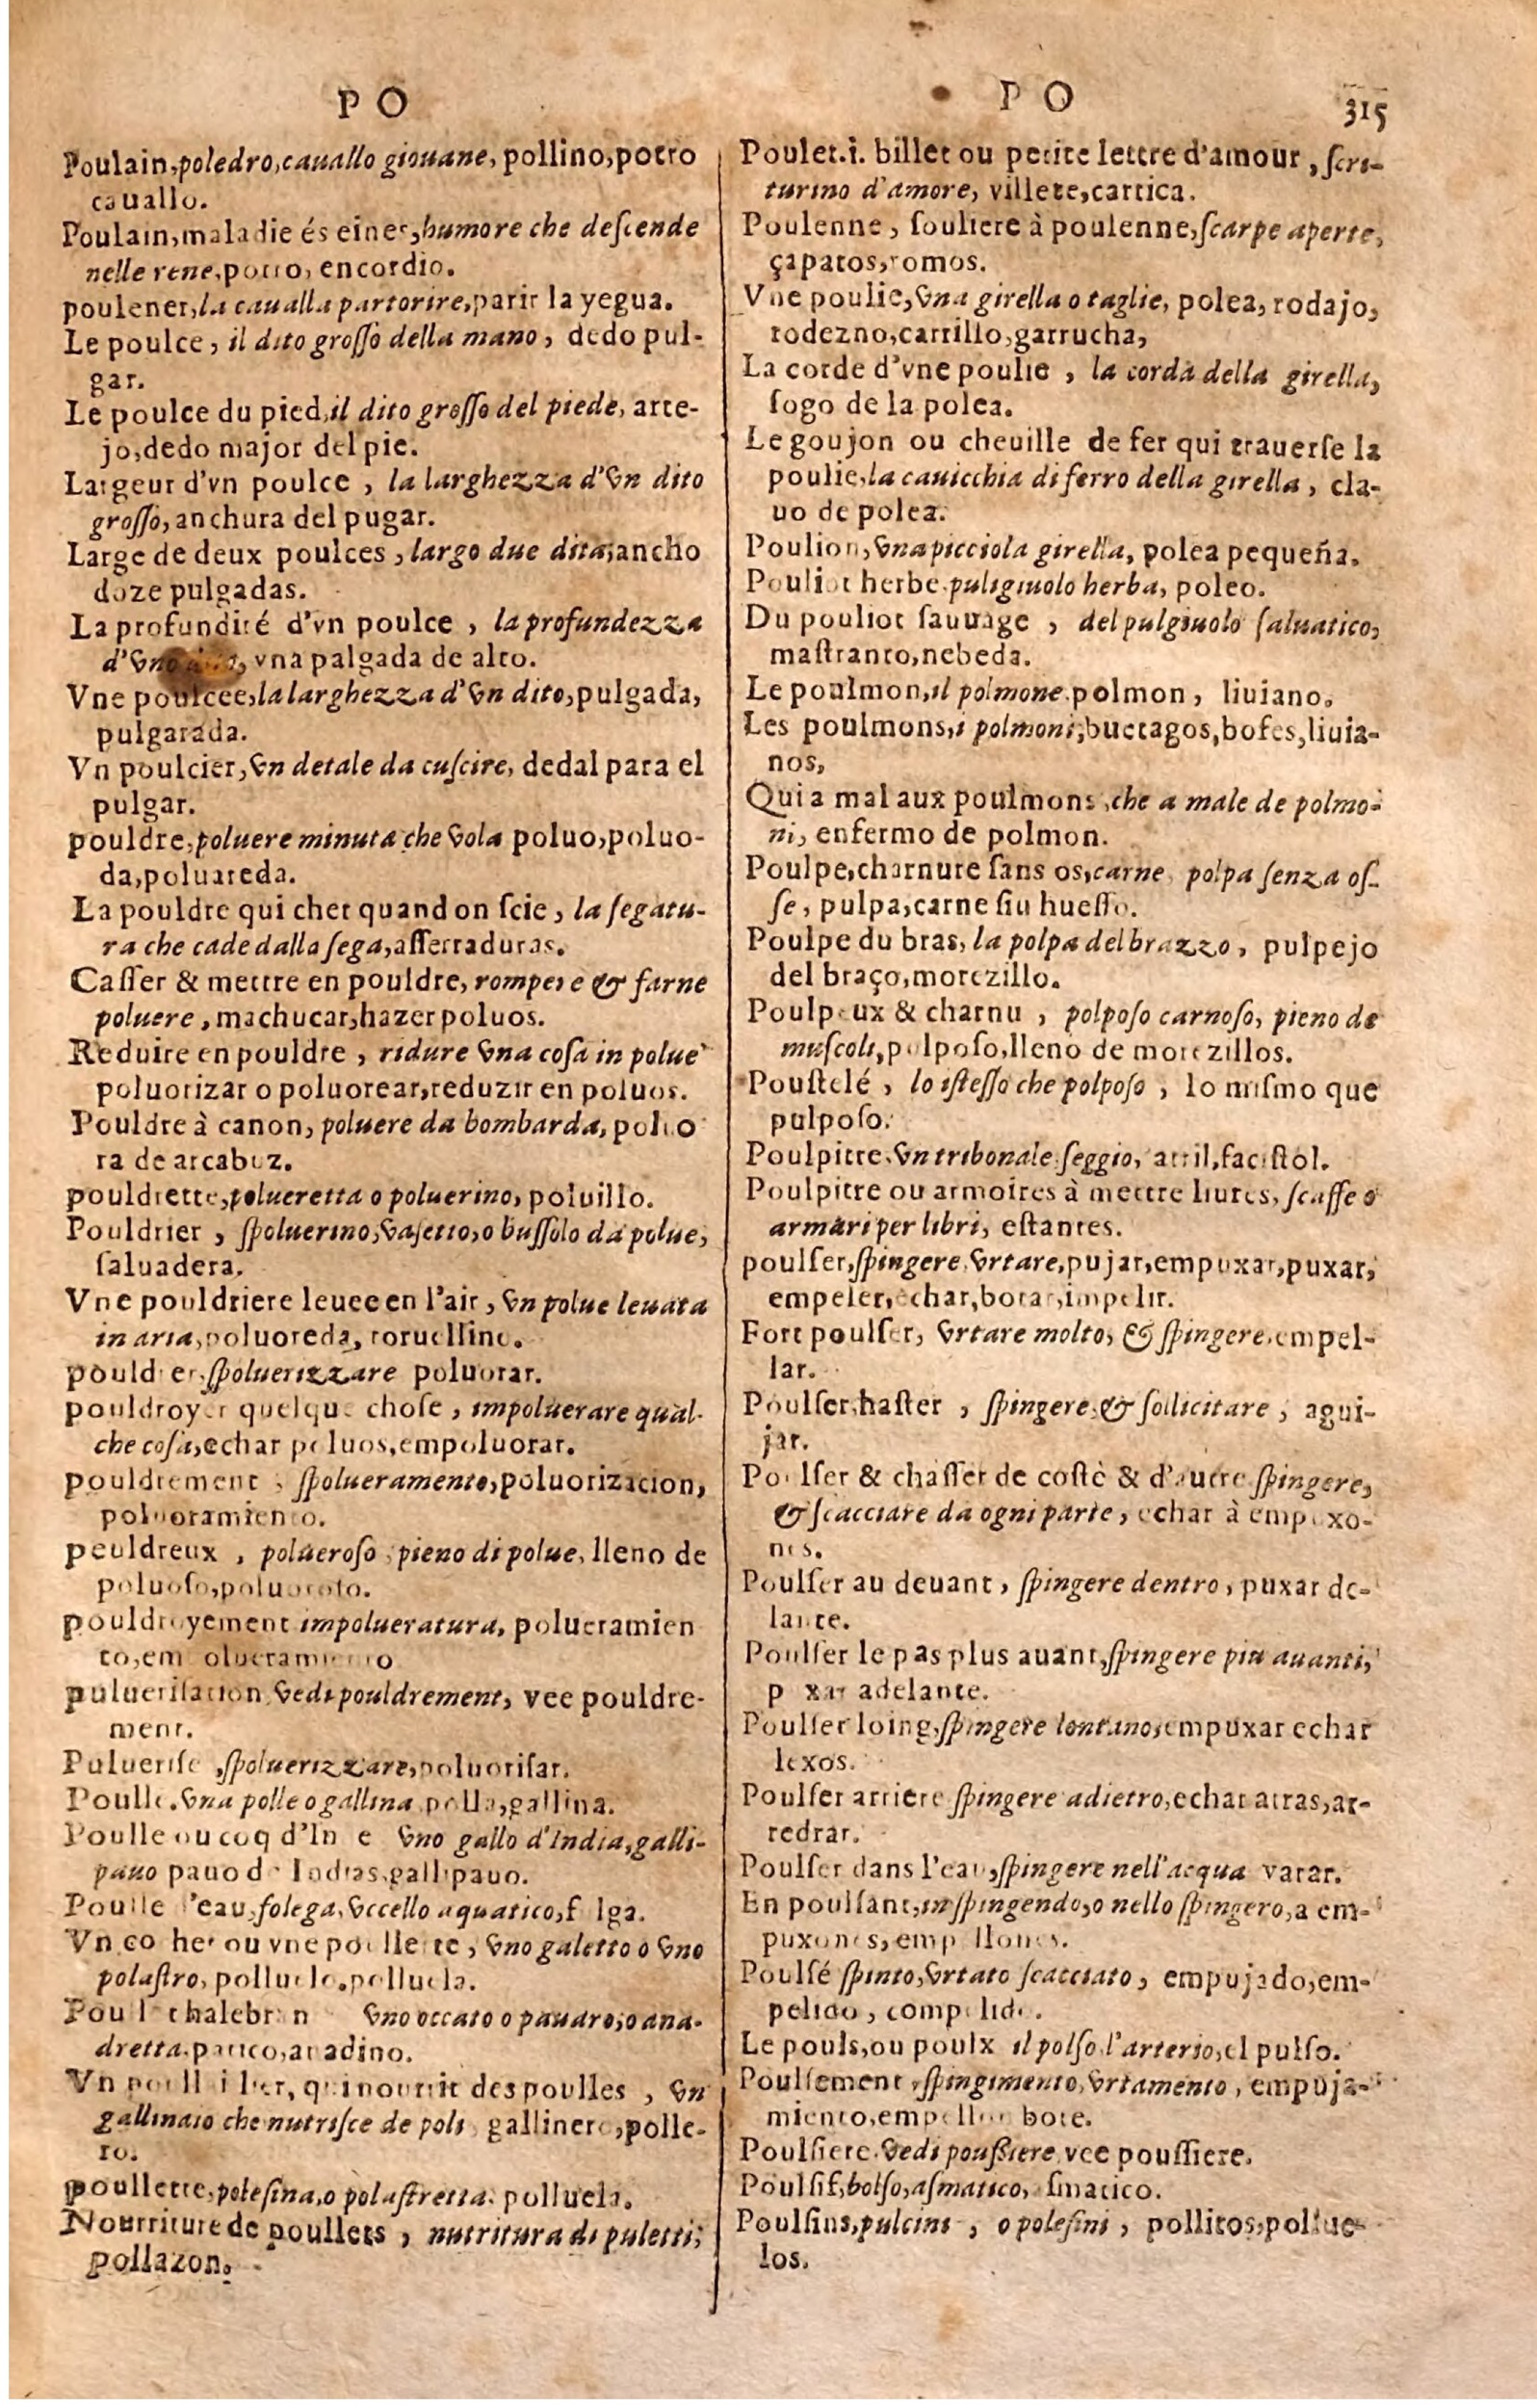 PO
PO
315
Poulain, poledro, cauallo giouane, pollino, potro
cauallo.
Poulain, maladie és eines, humore che descende
nelle rene, potro, encordio.
poulener, la caualla partorire, parir la yegua.
Le poulce, il dito grosso della mano, dedo pul-
gar.
Le poulce du pied, il dito grosso del piede, arte-
jo, dedo major del pie.
Largeur d'vn poulce, la larghezza d'vn dito
grosso, anchura del pugar.
Large de deux poulces, largo due dita, ancho
doze pulgadas.
La profundité d'vn poulce, la profundezza
d'vno, vna palgada de alto.
Vne poulcee, la larghezza d'vn dito, pulgada,
pulgarada.
Vn poulcier, vn detale da cuscire, dedal para el
pulgar.
pouldre, poluere minuta che vola poluo, poluo-
da, poluareda.
La pouldre qui chet quand on scie, la segatu-
ra che cade dalla sega, asserraduras.
Casser & mettre en pouldre, rompere & farne
poluere, machucar, hazer poluos.
Reduire en pouldre, ridure vna cosa in polue
poluorizar o poluorear, reduzir en poluos.
Pouldre à canon, poluere da bombarda, poluo
ra de arcabuz.
pouldrette, polueretta o poluerino, poluillo.
Pouldrier, spoluerino, vasetto, o bussolo da polue,
saluadera.
Vne pouldriere leuee en l'air, vn polue leuata
in aria, poluoreda, toruellino.
pouldrer, spoluerizzare poluorar.
pouldroyer quelque chose, impoluerare qual-
che cosa, echar poluos, empoluorar.
pouldrement, spolueramento, poluorizacion,
poluoramiento.
peuldreux, polueroso, pieno di polue, lleno de
poluoso, poluoroso.
pouldroyement impolueratura, polueramien
to, em olueramiento
puluerisation vedi pouldrement, vee pouldre-
ment.
Puluerise, spoluerizzare, poluorisar.
Poulle. vna polle o gallina polla, gallina.
Poulle ou coq d'In e vno gallo d'India, galli-
pauo pauo de Indias, gallipauo.
Poulle l'eau, folega, vccello aquatico, f lga.
Vn co het ou vne poullette, vno galetto o vno
polastro, polluelo, polluela.
Poull chalebran vno occato o pauaro, o ana-
dretta. patico, anadino.
Vn poullailler, qui nourrit des poulles, vn
gallinaio che nutrisce de poli, gallinero, polle-
ro.
poullette, polesina, o polastretta. polluela.
Nourriture de poullets, nutritura di puletti,
pollazon.
Poulet. i. billet ou petite lettre d'amour, scri-
turino d'amore, villete, cartica.
Poulenne, souliere à poulenne, scarpe aperte,
çapatos, romos.
Vne poulie, vna girella o taglie, polea, rodajo,
rodezno, carrillo, garrucha,
La corde d'vne poulie, la corda della girella,
sogo de la polea.
Le goujon ou cheuille de fer qui trauerse la
poulie, la cauicchia di ferro della girella, cla-
uo de polea.
Poulion, vna picciola girella, polea pequeña.
Pouliot herbe. puligiuolo herba, poleo.
Du pouliot sauuage, del pulgiuolo saluatico,
mastranto, nebeda.
Le poulmon, il polmone. polmon, liuiano.
Les poulmons, i polmoni, buetagos, bofes, liuia-
nos,
Qui a mal aux poulmons, che a male de polmo-
ni, enfermo de polmon.
Poulpe, charnure sans os, carne, polpa senza os-
se, pulpa, carne siu huesso.
Poulpe du bras, la polpa del brazzo, pulpejo
del braço, morezillo.
Poulpeux & charnu, polposo carnoso, pieno de
muscoli, pulposo, lleno de morezillos.
Poustelé, lo istesso che polposo, lo mismo que
pulposo.
Poulpitre. vn tribonale seggio, atril, facistol.
Poulpitre ou armoires à mettre liures, scaffe o
armari per libri, estantes.
poulser, spingere vrtare, pujar, empuxar, puxar,
empeler, echar, botar, impelir.
Fort poulser, vrtare molto, & spingere, empel-
lar.
Poulser, haster, spingere, & sollicitare, agui-
jar.
Poulser & chasser de costé & d'autre spingere,
& scacciare da ogni parte, echar à empuxo-
nes.
Poulser au deuant, spingere dentro, puxar de-
lante.
Poulser le pas plus auant, spingere piu auanti,
p xar adelante.
Poulser loing, spingere lontano, empuxar echar
lexos.
Poulser arriere spingere adietro, echar atras, ar-
redrar.
Poulser dans l'eau, spingere nell'acqua varar.
En poulsant, in spingendo, o nello spingero, a em-
puxones, empellones.
Poulsé spinto, vrtato scacciato, empujado, em-
pelido, compelido.
Le pouls, ou poulx il polso l'arterio, el pulso.
Poulsement, spingimento, vrtamento, empuja-
miento, empellon bote.
Poulsiere. vedi poussiere vee poussiere.
Poulsif, bolso, asmatico, asmatico.
Poulsins, pulcini, o polesini, pollitos, pollue-
los.